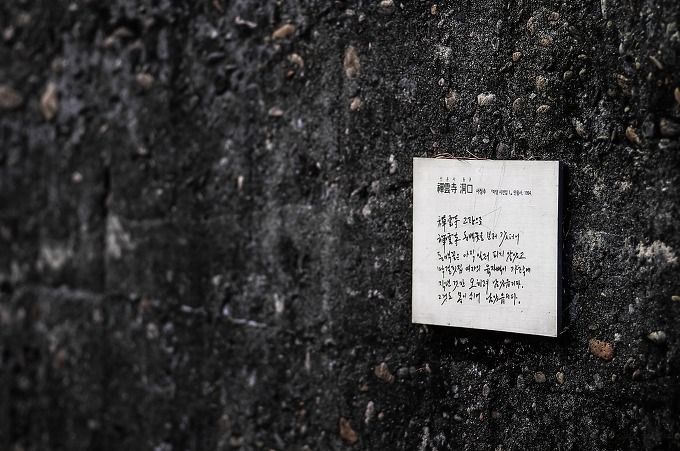 선 운 사 동 구
禪雲寺 洞口 서정주 「미당 시전집 1」, 민음사, 1994.
禪雲寺 고랑으로
禪雲寺 동백꽃을 보러 갔더니
동백꽃은 아직 일러 피지 않았고
막걸릿집 여자의 육자배기 가락에
작년 것만 오히려 남았습디다.
그것도 목이 쉬어 남았습디다.